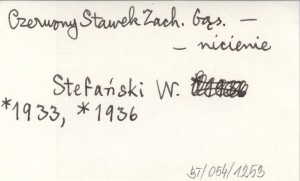 Czerwony Stawek Zach. Gąs. —
— nicienie
Stefański W.
*1933, *1936
57/054/1253